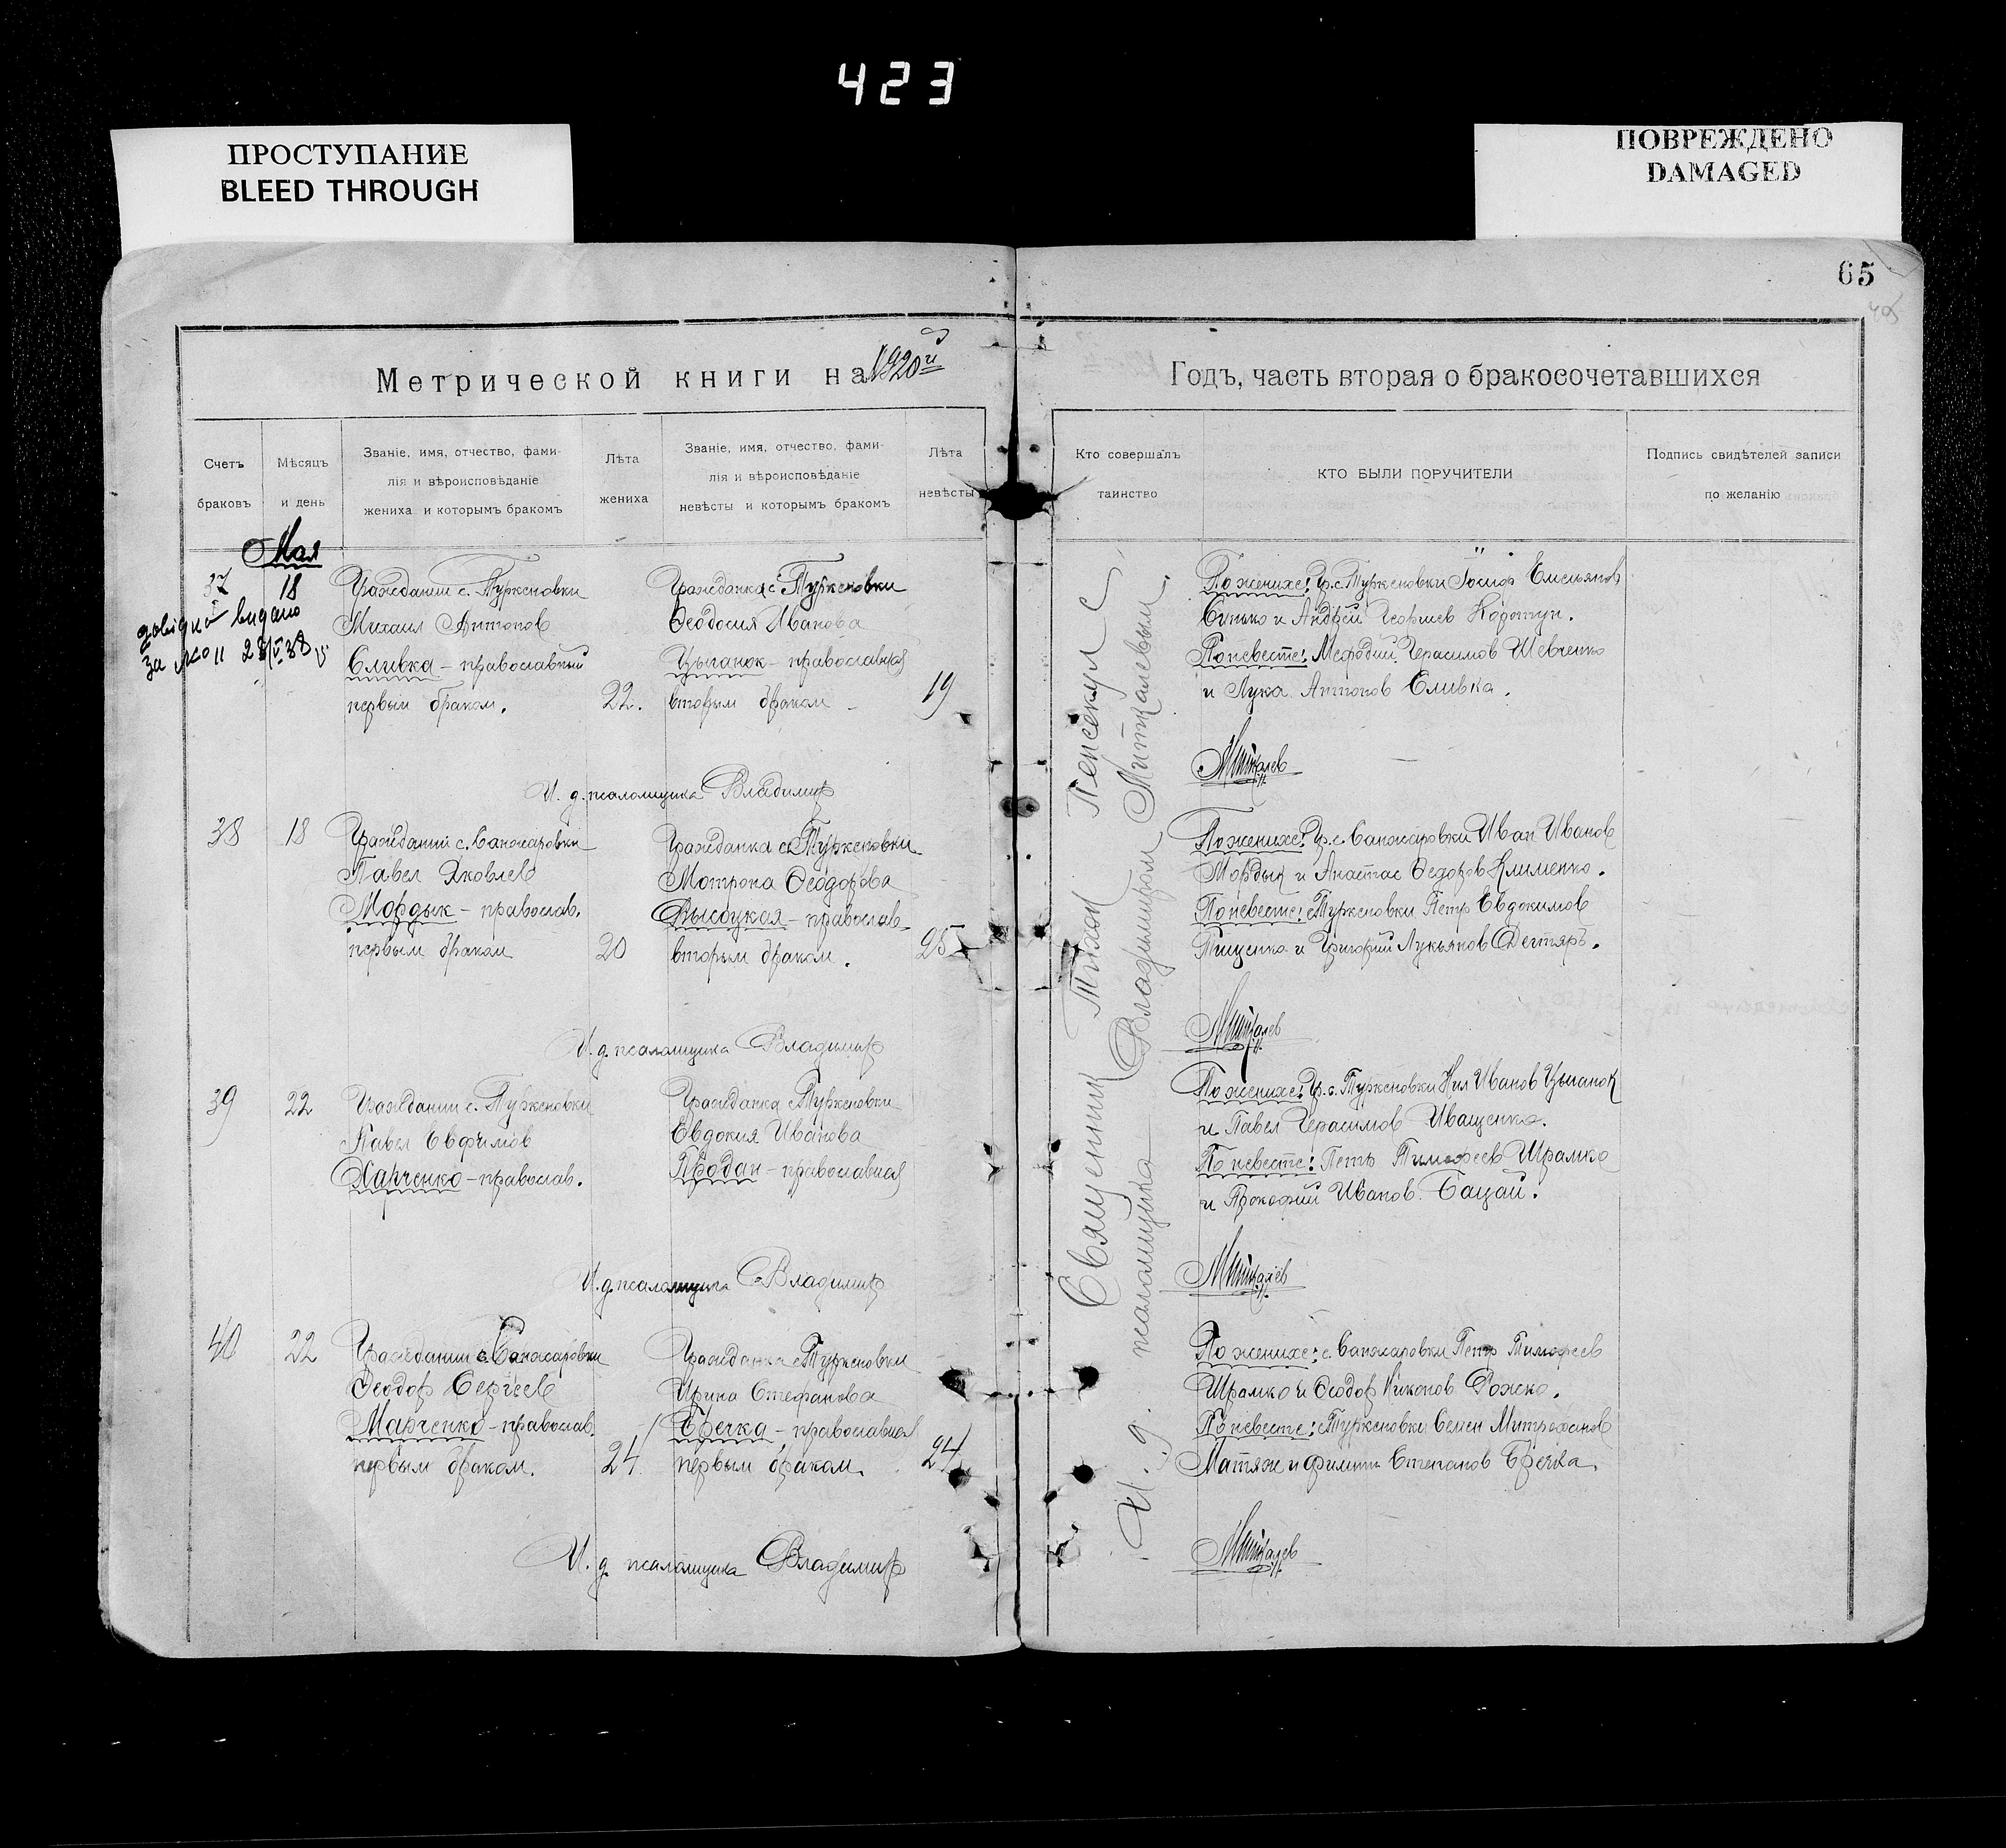 423
ПРОСТУПАНИЕ
BLEED THROUGH
ПОВРЕЖДЕНО
DAMAGED
65
Метрической книги на 1920й
Годъ, часть вторая о бракосочетавшихся
Счетъ браковъ
Мѣсяцъ и день
Званіе, имя, отчество, фами-
лія и вѣроисповѣданіе
жениха и которымъ бракомъ
Лѣта жениха
Званіе, имя, отчество, фами-
лія и вѣроисповѣданіе
невѣсты и которымъ бракомъ
Лѣта невѣсты
Кто совершалъ таинство
КТО БЫЛИ ПОРУЧИТЕЛИ
Подпись свидѣтелей записи
по желанію
Мая
37
18
довідка видано
за №11
Гражданин с. Туркеновки
Михаил Антонов
Сливка - православный
первым браком.
22.
Гражданка с Туркеновки
Феодосия Иванова
Цыганок - православная
вторым браком
19
По женихе: Гр. с. Туркеновки Иосиф Емельянов
и Андрей Георгиев
По невесте: Мефодий Герасимов Шевченко
и Лука Антонов Сливка.
И. д. псаломщика Владимир Миткалев
38
18
Гражданин с. Санжаровки
Павел Яковлев
Мордык - православ.
первым браком
20
Гражданка с Туркеновки
Мотрона Феодорова
Высоцкая - православ.
вторым браком.
25
По женихе: Гр. с. Санжаровки Иван Иванов
Мордык и Анастас Федоров Клименко.
По невесте: с Туркеновки Петр Евдокимов
Пищенко и Григорий Лукьянов Дегтярь.
И. д. псаломщика Владимир Миткалев
39
22
Гражданин с. Туркеновки
Павел Евфимов
Харченко - православ.
Гражданка с Туркеновки
Евдокия Иванова
Продан - православная
По женихе: Гр. с. Туркеновки Нил Иванов Цыганок
и Павел Герасимов Иващенко.
По невесте: Петр Тимофеев Шрамко
и Прокофий Иванов Бацай.
И. д. псаломщика Владимир Миткалев
40
22
Гражданин с Санжаровки
Феодор Сергеев
Марченко - православ.
первым браком.
24
Гражданка с Туркеновки
Ирина Стефанова
Гречка - православная
первым браком.
24
По женихе: с. Санжаровки Петр Тимофеев
Шрамко и Феодор Никонов Рожко.
По невесте: с Туркеновки Семен Митрофанов
Матяж и Филипп Степанов Гречка.
И. д. псаломщика Владимир Миткалев
Священник Тихон Персекул с
И. д. псаломщика Владимиром Миткалевым